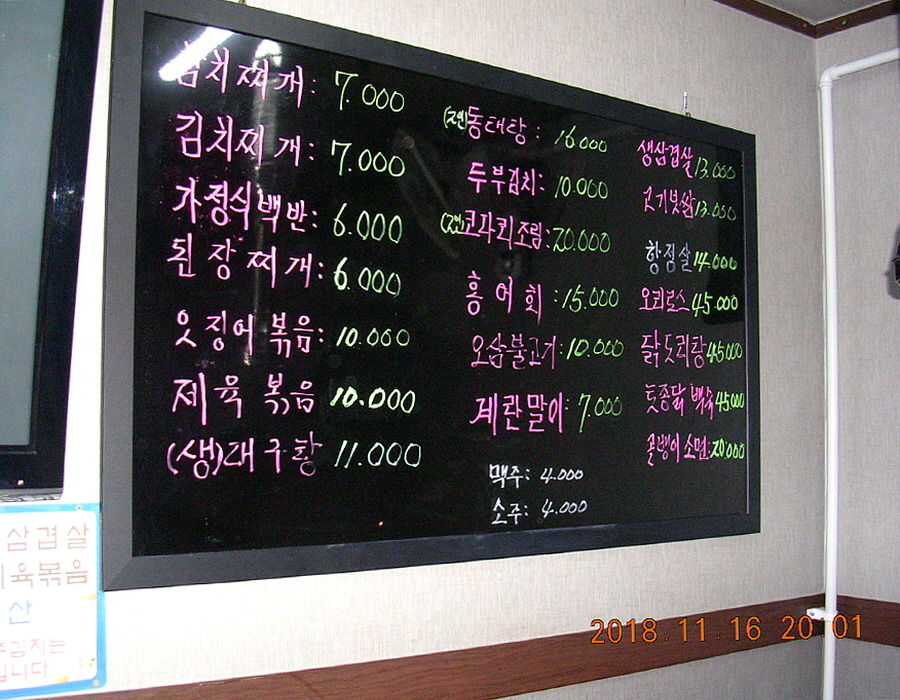 김치찌개: 7.000
김치찌개: 7.000
가정식백반: 6.000
된장찌개: 6.000
옷징어볶음: 10.000
제육볶음 10.000
(생)대구황 11.000
동태탕: 16.000
두부김치: 10.000
코다리조림: 20.000
홍어회: 15.000
오삼불고기: 10.000
계란말이: 7.000
맥주: 4.000
소주: 4.000
생삼겹살 13.000
13.000
항정살 14.000
오리로스 45.000
닭도리탕 45.000
토종닭 백숙 45.000
골뱅이 소면: 20.000
삼겹살
육볶음
산
김치는
입니다
2018.11.16 20:01